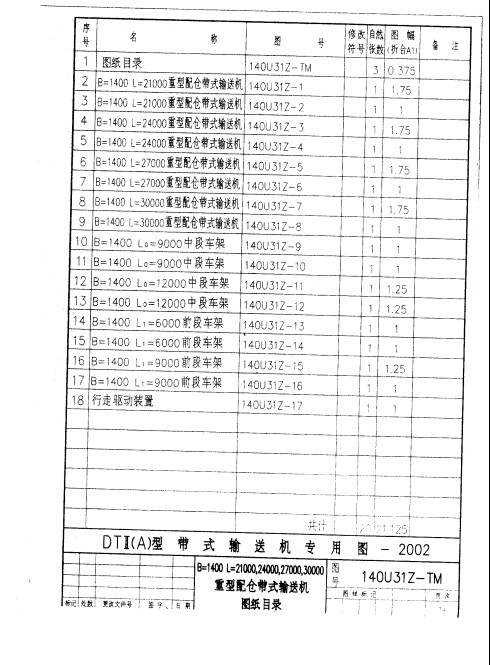 序号 名 称 图 号 修改符号 自然张数 图幅(折合A1) 备 注
1 图纸目录 140U31Z-TM 3 0.375
2 B=1400 L=21000重型配仓带式输送机 140U31Z-1 1 1.75
3 B=1400 L=21000重型配仓带式输送机 140U31Z-2 1 1
4 B=1400 L=24000重型配仓带式输送机 140U31Z-3 1 1.75
5 B=1400 L=24000重型配仓带式输送机 140U31Z-4 1 1
6 B=1400 L=27000重型配仓带式输送机 140U31Z-5 1 1.75
7 B=1400 L=27000重型配仓带式输送机 140U31Z-6 1 1
8 B=1400 L=30000重型配仓带式输送机 140U31Z-7 1 1.75
9 B=1400 L=30000重型配仓带式输送机 140U31Z-8 1 1
10 B=1400 L0=9000中段车架 140U31Z-9 1 1
11 B=1400 L0=9000中段车架 140U31Z-10 1 1
12 B=1400 L0=12000中段车架 140U31Z-11 1 1.25
13 B=1400 L0=12000中段车架 140U31Z-12 1 1.25
14 B=1400 L1=6000前段车架 140U31Z-13 1 1
15 B=1400 L1=6000前段车架 140U31Z-14 1 1
16 B=1400 L1=9000前段车架 140U31Z-15 1 1.25
17 B=1400 L1=9000前段车架 140U31Z-16 1 1
18 行走驱动装置 140U31Z-17 1 1
共计 20 21.125
DTⅡ(A)型 带 式 输 送 机 专 用 图 - 2002
B=1400 L=21000,24000,27000,30000
重型配仓带式输送机
图纸目录
图号 140U31Z-TM
图样标记 页次
标记 处数 更改文件号 签字 日期